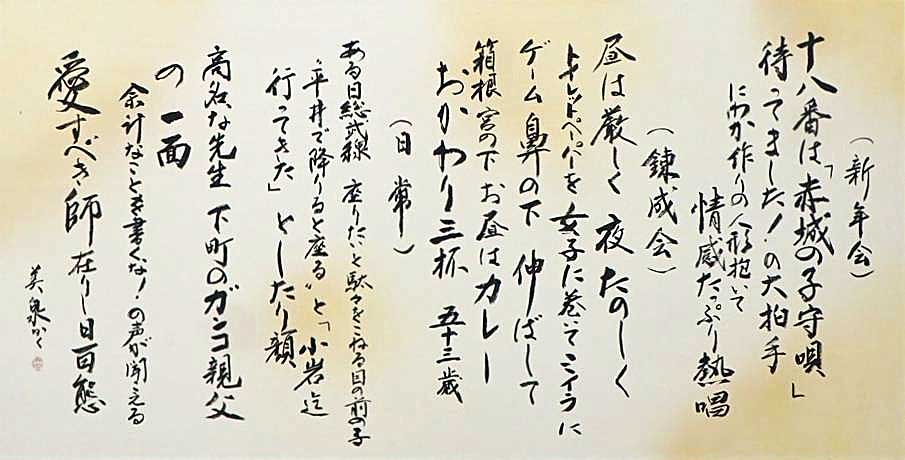 （新年会）
十八番は「赤城の子守唄」
待ってました！の大拍手
にわか作りの人形抱いて
情感たっぷり熱唱
（錬成会）
昼は厳しく夜たのしく
トイレットペーパーを女子に巻いてミイラに
ゲーム鼻の下伸ばして
箱根宮の下お昼はカレー
おかわり三杯 五十三歳
（日常）
ある日総武線 座りたいと駄々をこねる目の前の子
〝平井で降りると座る〟と「小岩迄
行ってきた」としたり顔
高名な先生 下町のガンコ親父
の一面
余計なこと書くな！の声が聞える
愛すべき師在りし日百態
美泉かく